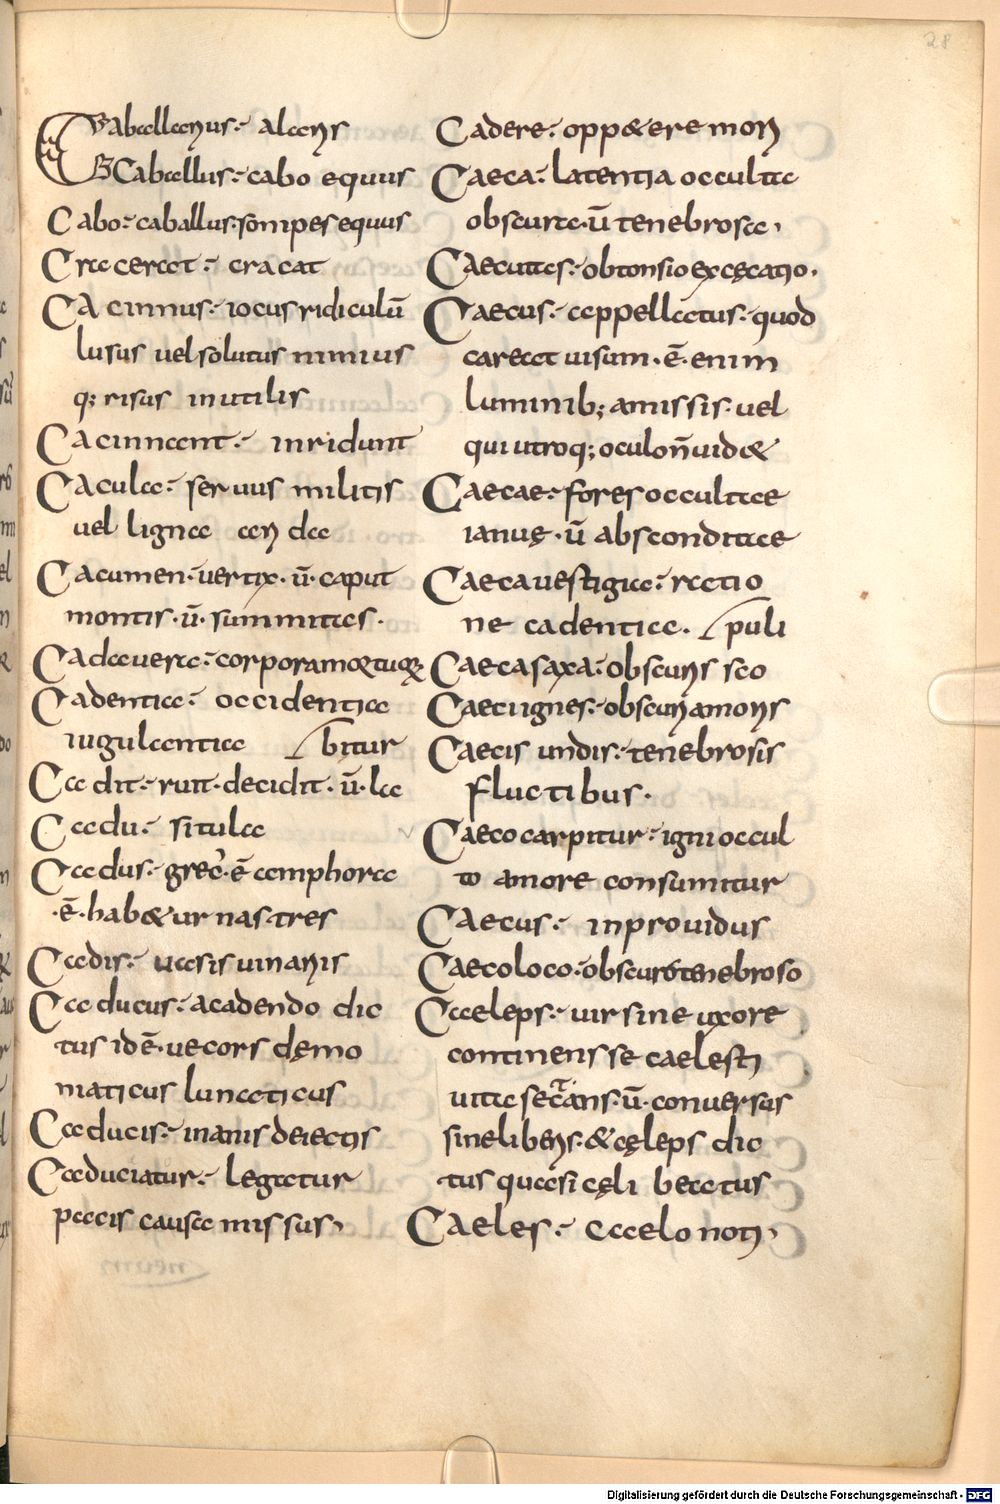 28
Caballanus· alanis
Caballus· cabo equus
Cabo· caballus·sonipes equus
Cracerat· cracat
Cacinnus· iocus ridiculū
lusus uel solutus nimius
q; risus inutilis
Cacinnant· inridunt
Cacula· seruus militis
uel lignea arida
Cacumen·uertix·ū·caput
montis·ū·summitas·
Cadauera·corpora mortuorum
Cadentia· occidentia
iugulantia bitur
Cadit·ruit·decidit·ū·la
Cadu· situla
Cadus·grec̄·ē amphora
·ē·hab& urnas·tres
Cadis· uasis uinariis
Caducus· a cadendo dic
tus id ē·uecors dęmo
niaticus lunaticus
Caducis· inanis deiectis
Caduciatur· legatur
pacis causa missus,
Cadere· opp&ere mori
Caeca· latentia occulta
obscura·ū tenebrosa,
Caecitas· obtonsio excęcatio·
Caecus· appellatus·quod
careat uisum·ē·enim
luminib; amissis·uel
qui utroq; oculo n̄ uid&
Caecae·fores occultae
ianuę·ū absconditae
Caeca uestigia·ratio
ne cadentia· puli
Caeca saxa·obscuris sco
Caeci ignes·obscuri amoris
Caecis undis·tenebrosis
fluctibus·
Caeco carpitur·igni occul
to amore consumitur
Caecus· inprouidus
Caeco loco·obscuro tenebroso
Caeleps·uir sine uxore
continens se caelesti
uita sectans·ū·conuersas
sine liberis·& cęleps dic
tus quasi cęli beatus
Caeles· a caelo noti,
Digitalisierung gefördert durch die Deutsche Forschungsgemeinschaft - DFG